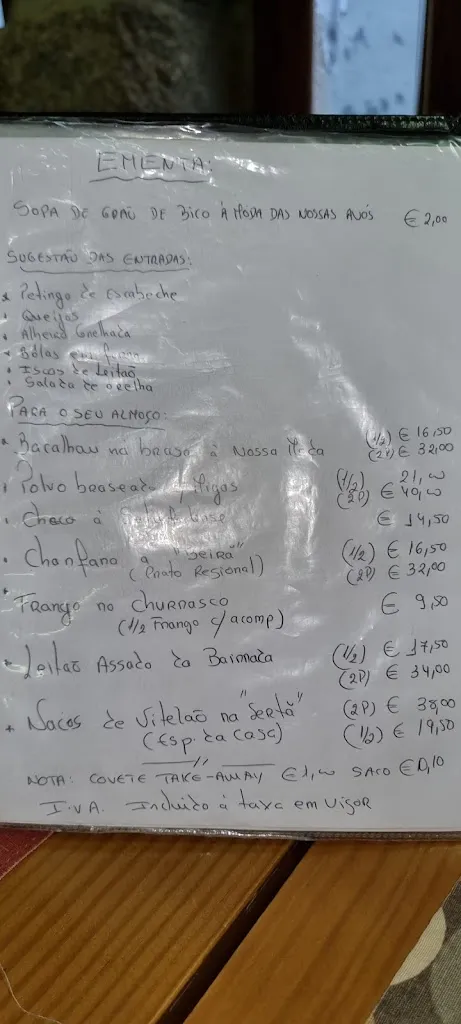 EMENTA:
SOPA DE GRÃO DE BICO À MODA DAS NOSSAS AVÓS € 2,00
SUGESTÃO DAS ENTRADAS:
* Petinga de Escabeche
• Queijos
• Alheira Grelhada
• Bôlas em forno
• Iscas de Leitão
• Salada de orelha
PARA O SEU ALMOÇO:
* Bacalhau na brasa à Nossa Moda (1/2) € 16,50
(2P) € 32,00
• Polvo braseado c/ Migas (1/2) 21,00
(2P) € 40,00
• Choco à € 14,50
• Chanfana à "Beira" (1/2) € 16,50
(Prato Regional) (2P) € 32,00
* Frango no CHURRASCO € 9,50
(1/2 Frango c/ acomp)
* Leitão Assado da Bairrada (1/2) € 17,50
(2P) € 34,00
* Nacos de Vitelão na "Sertã" (2P) € 38,00
(Esp. da Casa) (1/2) € 19,50
NOTA: COVETE TAKE-AWAY € 1,00 SACO € 0,10
I.V.A. Incluido á taxa em vigor